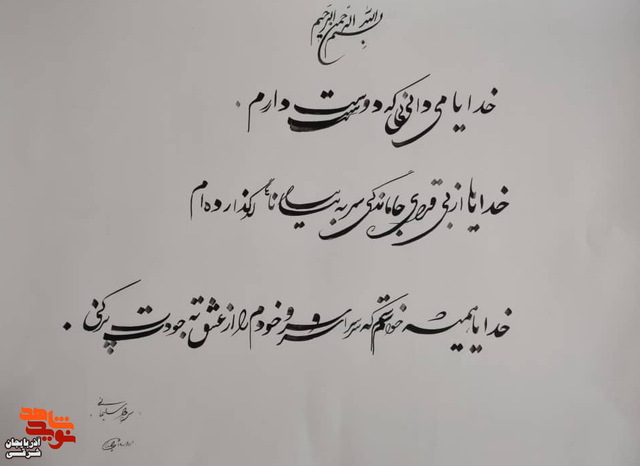 بسم الله الرحمن الرحیم
خدایا می دانی که دوستت دارم .
خدایا از بی قراری جاماندگی سر به بیابانها گذارده ام
خدایا همیشه خواستم که سراسر وجودم را از عشق به خودت پر کنی .
سلیمانی
نوید شاهد
آذربایجان
شرقی